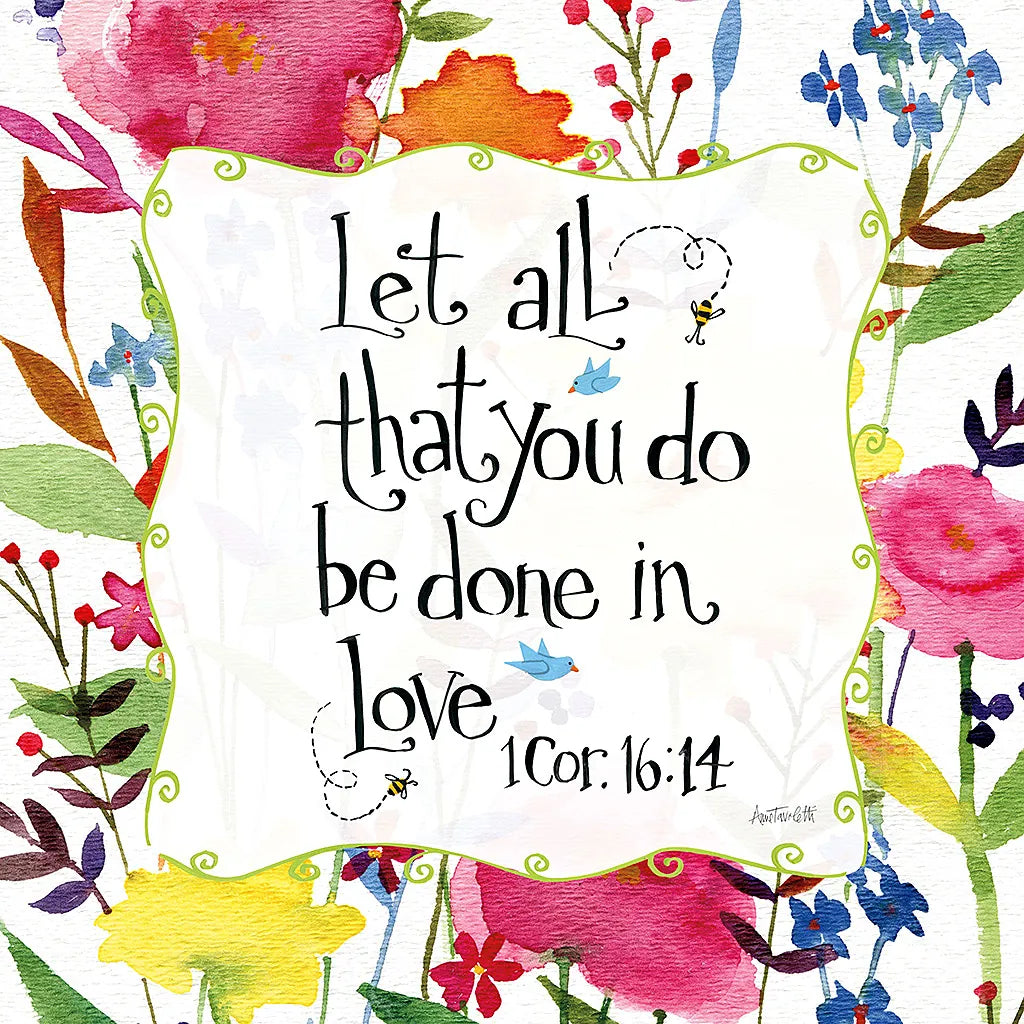 Let all
that you do
be done in
love
1 Cor. 16:14
Anne Tavoletti